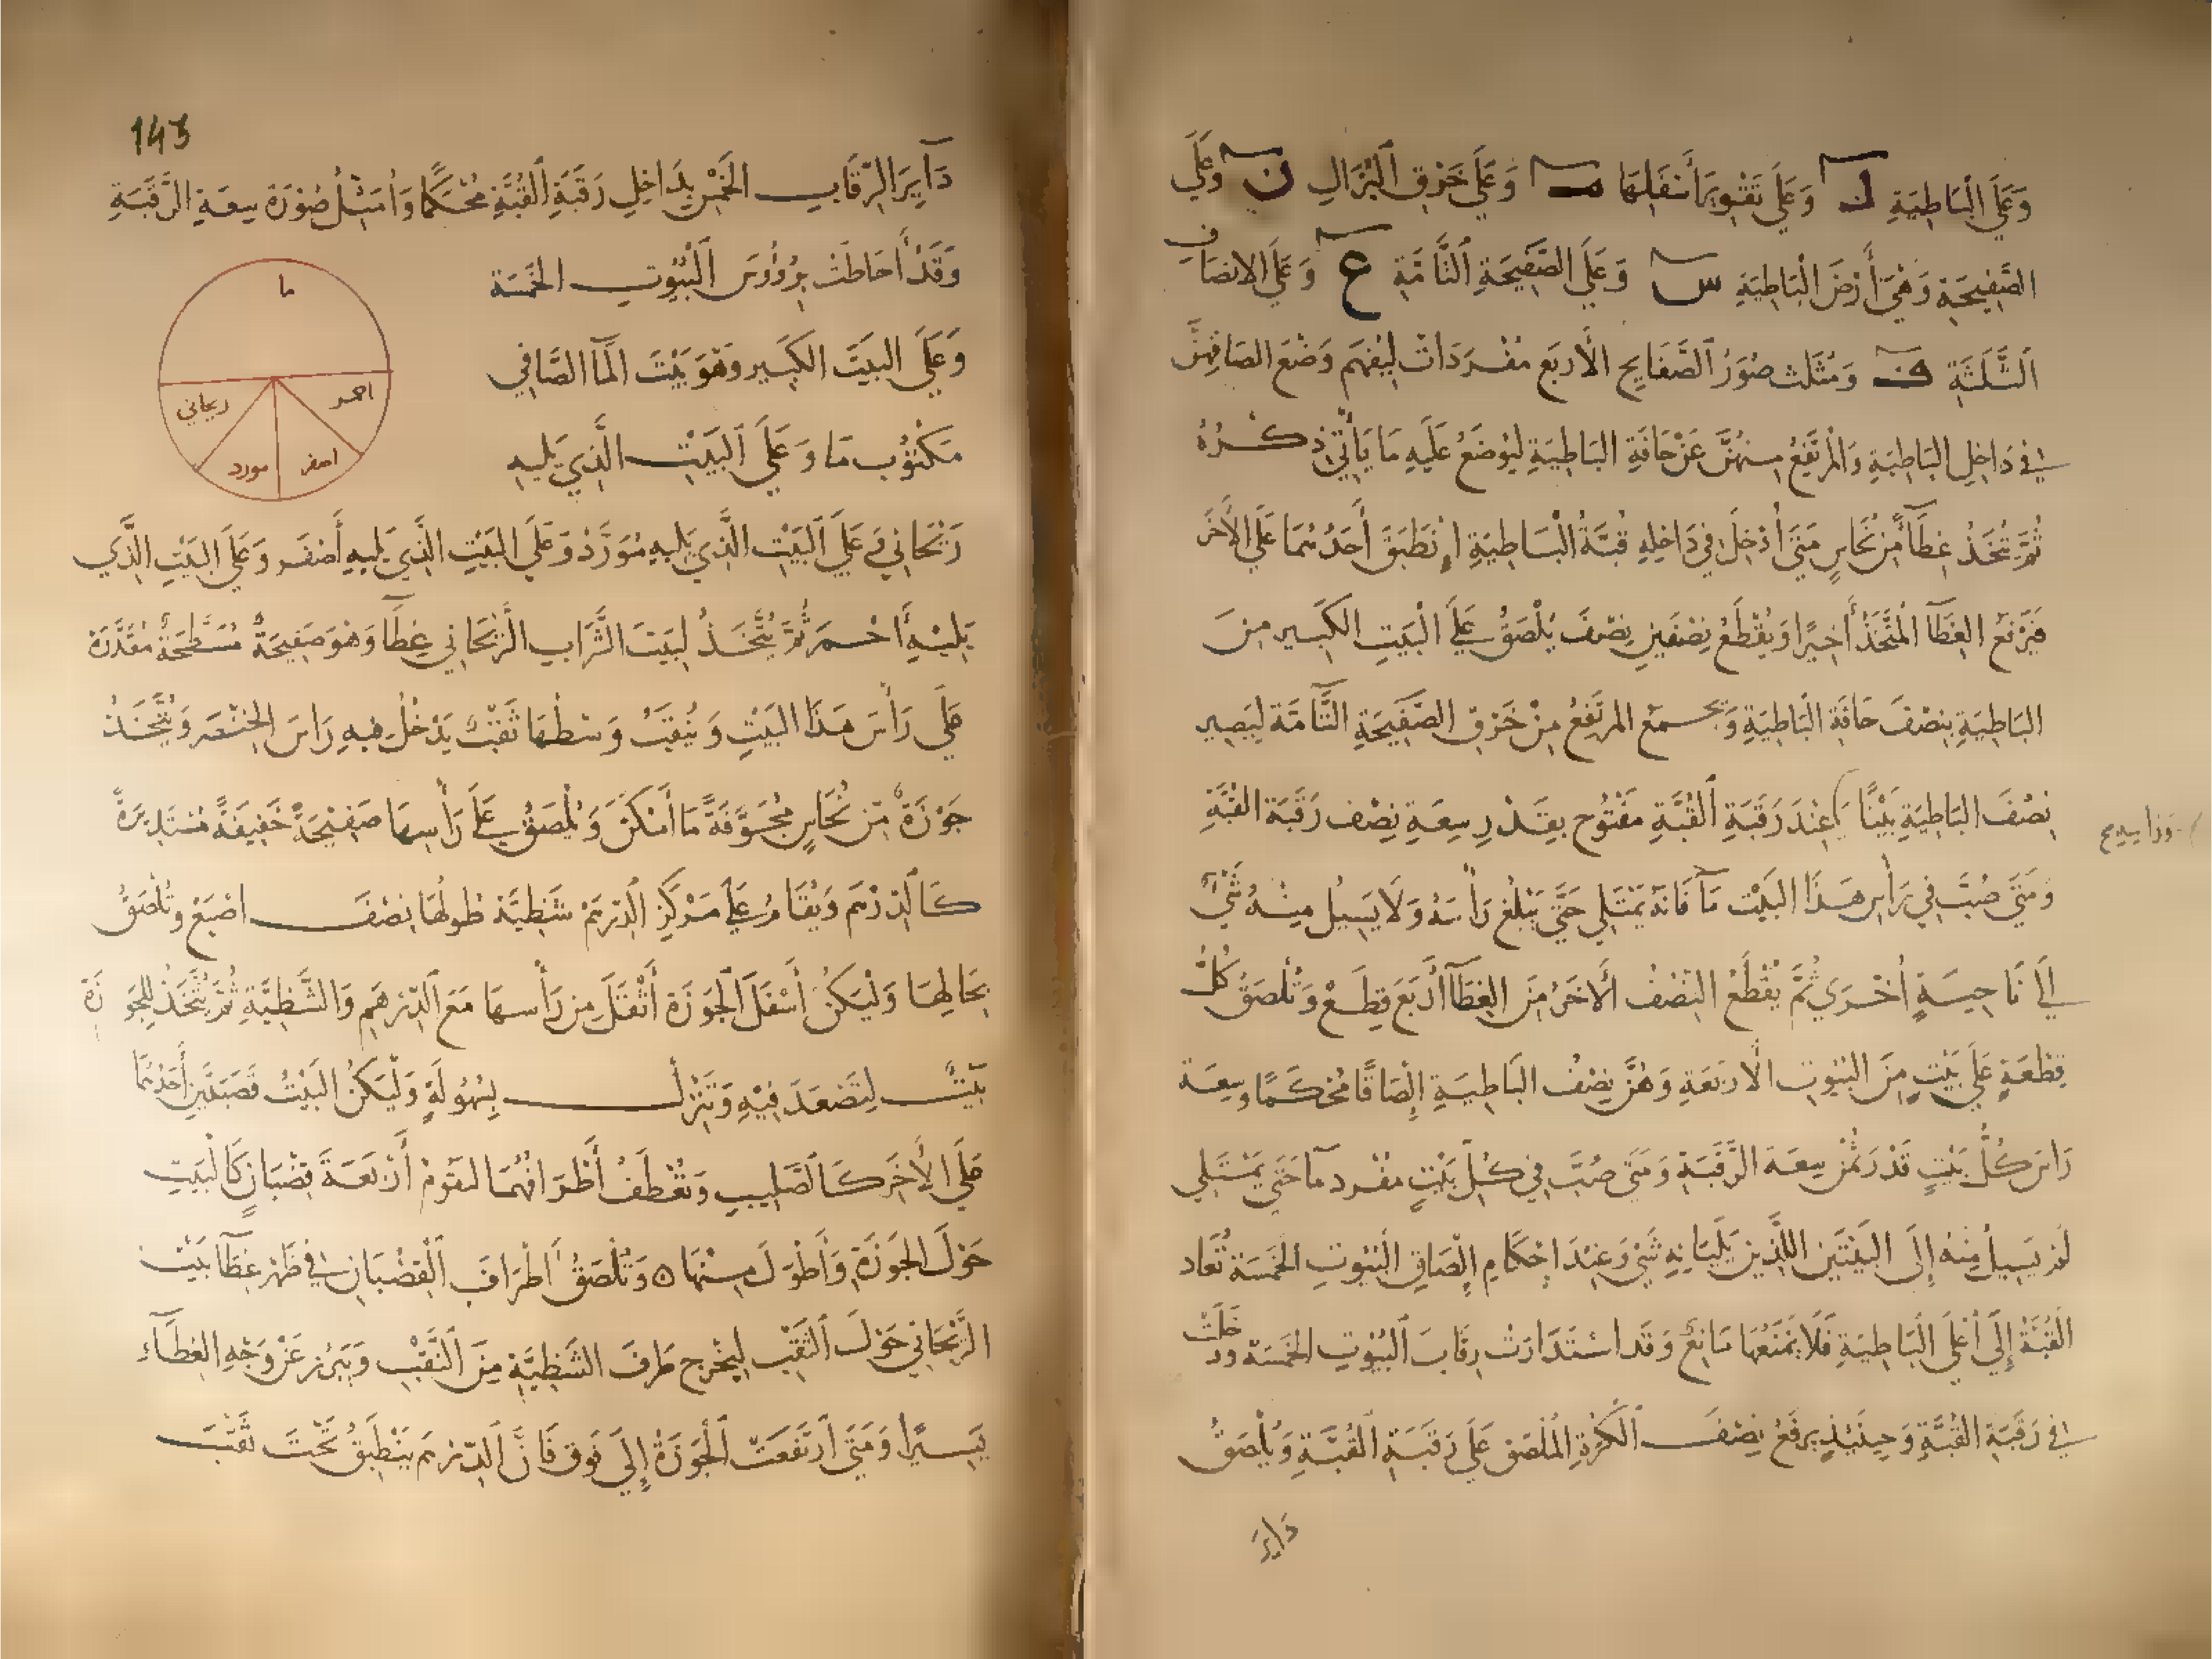 وَعَلَى الْبَاطِيَةِ ل وَعَلَى تَقْوِيرِ أَسْفَلِهَا م وَعَلَى خَرْقِ الْبُزَالِ ن وَعَلَى
الصَّفِيحَةِ وَهْيَ أَرْضُ الْبَاطِيَةِ س وَعَلَى الصَّفِيحَةِ التَّامَّةِ ع وَعَلَى الانصَافِ
الثَّلَثَةِ ف وَمُثِّلَت صُوَرُ الصَّفَايِحِ الأَربَع مُفْرَدَاتْ لِيُفهَم وَضْعَ الصَاقِهِنَّ
فِي دَاخِلِ البَاطِيَةِ وَالمُرتَفِعُ مِنهُنَّ عَنْ حَافَةِ البَاطِيَةِ لِيُوضَعُ عَلَيهِ مَا يَأتِي ذِكْرُهُ
ثُمَّ تُتَّخَذُ غِطَآءً مِن نُحَاسٍ مَتَى أُدْخِلَ فِي دَاخِلِهِ قُبَّةُ البَاطِيَةِ اِنْطَبَقَ أَحَدُهُمَا عَلَى الأَخَر
فَيُرْفَع الغِطَآ المُتَّخَذُ أَخِيرًا وَيُقْطَعُ نِصْفَينِ نِصْفٌ يُلْصَقُ عَلَى الْبَيتِ الكَبِير مِنَ
البَاطِيَةِ بِنِصْفَ حَافَةِ البَاطِيَةِ وَيجمع المرتَفِعُ مِنْ خَرْقِ الصَّفِيحَةِ التَّآمَّة لِيَصِير
نِصْفُ البَاطِيَةِ بَيْتًا عِندَ رَقَبَةِ القُبَّةِ مَفْتُوح بِقَدْرِ سِعَةِ نِصْفِ رَقَبَة القُبَّةِ
وَزَا يديح
وَمَتَى صُبَّ فِي رَأسِ هَذَا البَيْت مَآ فَانَهُ يَمْتَلِي حَتَّى يَبْلُغ رَأسَهُ وَلَا يَسِيلُ مِنْهُ شَيْ
إِلَى نَاحِيَةٍ أُخْرَى ثُمَّ يُقْطَعُ النِّصْفُ الأَخَرُ مِنَ الغِطَآ أَرْبَعَ قِطَعْ وَتُلصَقُ كُلُّ
قِطْعَةٍ عَلَى بَيْتٍ مِنَ البُيُوتِ الأَرْبَعَةِ وَهُنَّ نِصْفُ البَاطِيَةِ إِلْصَاقًا مُحْكَمًا وسِعَة
رَاس كُلُّ بَيْتٍ قَدْرَ ثُمْنِ سِعَة الرَّقَبَةِ وَمَتَى صُبَّ فِي كُلِّ بَيْتٍ مفْرد مآ حَتَى يَمْتَلِي
لَم يَسِيلُ مِنهُ إِلَى البَيْتَينِ اللَّذِينِ يَلِيَانِهِ شَيْ وَعِنْدَ إِحْكَامِ إِلْصَاقِ البُيُوتِ الخَمسَة تُعَاد
القُبَّةُ إِلَى أَعْلَى البَاطِيَةِ فَلَا يَمْنَعُهَا مَانِعٌ وَقَد استَدَارَتْ رِقَابَ البُيُوتِ الخَمسَة ودَخَلَتْ
فِي رَقَبَةِ القُبَّةِ وَحِينَئِذٍ يرفَعُ نِصْفَ الكُرَةِ المُلْصَق عَلَى رَقَبَةِ القُبَّةِ وَيُلْصَقُ
دَايرَ
143
دَآيِرَ الرِّقَابِ الخَمْسِ بِدَاخِلِ رَقَبَةِ القُبَّةِ مُحْكَمًا وَأُمَثِّلُ صُوْرَةَ سِعَةِ الرَّقَبَةِ
وَقَدْ أَحَاطَتْ بِرُؤُوسِ البُيُوتِ الخَمْسَة
وَعَلَى البَيتَ الكَبِير وَهُوَ بَيْتَ المَآ الصَّافِي
مَكْتُوب مَا وَعَلَى البَيْتِ الَّذِي يَلِيهِ
رَيْحَانِي وَعَلَى البَيْتِ الَّذِي يَلِيهِ مُوَرَّدْ وَعَلَى البَيْتِ الَّذِي يَلِيهِ أَصْفَر وَعَلَى البَيْتِ الَّذِي
يَلِيْهِ أَحْمَر ثُمَّ يُتَّخَذُ لِبَيْتَ الشَّرَابِ الرَّيْحَانِي غِطَآ وَهُوَ صَفِيحَةٌ مُسَطَّحَةٌ مُقَدَّرَة
عَلَى رَأْسِ هَذَا البَيْتِ وَيُثقَبُ وَسْطُهَا ثَقْبٌ يَدْخُلُ فِيهِ رَاسَ الخِنْصَر وَيُتَّخَذُ
جَوْزَةٌ مِن نُحَاسٍ مُجَوَّفَةً مَا أَمْكَنَ وَيُلْصَقُ عَلَى رَأْسِهَا صَفِيْحَةٌ خَفِيفَةً مُستَدِيرَةً
كَالدِّرْهَم وَيُقَامُ عَلَى مَرْكَزِ الدِّرهَمْ شَظِيَّة طُولُهَا نِصْفَ اصْبَعْ وتُلْصَقُ
بِحَالِهَا وَلْيَكُنْ أَسْفَلَ الجَوزَة أَثْقَلَ مِن رَأْسهَا مَعَ الدِّرهَمِ وَالشَّظِيَّةِ ثُمَّ يُتَّخَذُ لِلجَوزَة
بَيْتٌ لِتَصْعَدَ فِيْهِ وَتَنْزِلُ بِسُهُولَةٍ وَلْيَكُنُ البَيْتُ قَصَبَتَينِ أَحَدُهُمَا
عَلَى الأَخَرِ كَالصَّلِيبِ وَتُعْطَفُ أَطْرَافُهُمَا لتقُومُ أَرْبَعَةَ قِضْبَانٍ كَالبَيتِ
حَوْلَ الجَوْزَةِ وَأَطْوَلَ مِنْهَا ٥ وَتُلْصَقُ أَطْرَافَ القُضْبَانِ فِي ظَهْرِ غِطَآ بَيْتَ
الرَّيْحَانِي حَوْلَ الثَّقْبِ لِيَخْرج طَرفَ الشَّظِيَّةِ مِنَ الثَّقْبِ وَيَبْرُز عَنْ وَجْهِ الغِطَآءِ
يَسِيْرًا وَمَتَى ارتَفَعَتْ الجَوزَةُ إِلَى فَوق فَانَّ الدِّرْهَم يَنْطَبِقُ تَحْتَ ثَقْبَ
ما
احمر
اصفر
مورد
ريحاني